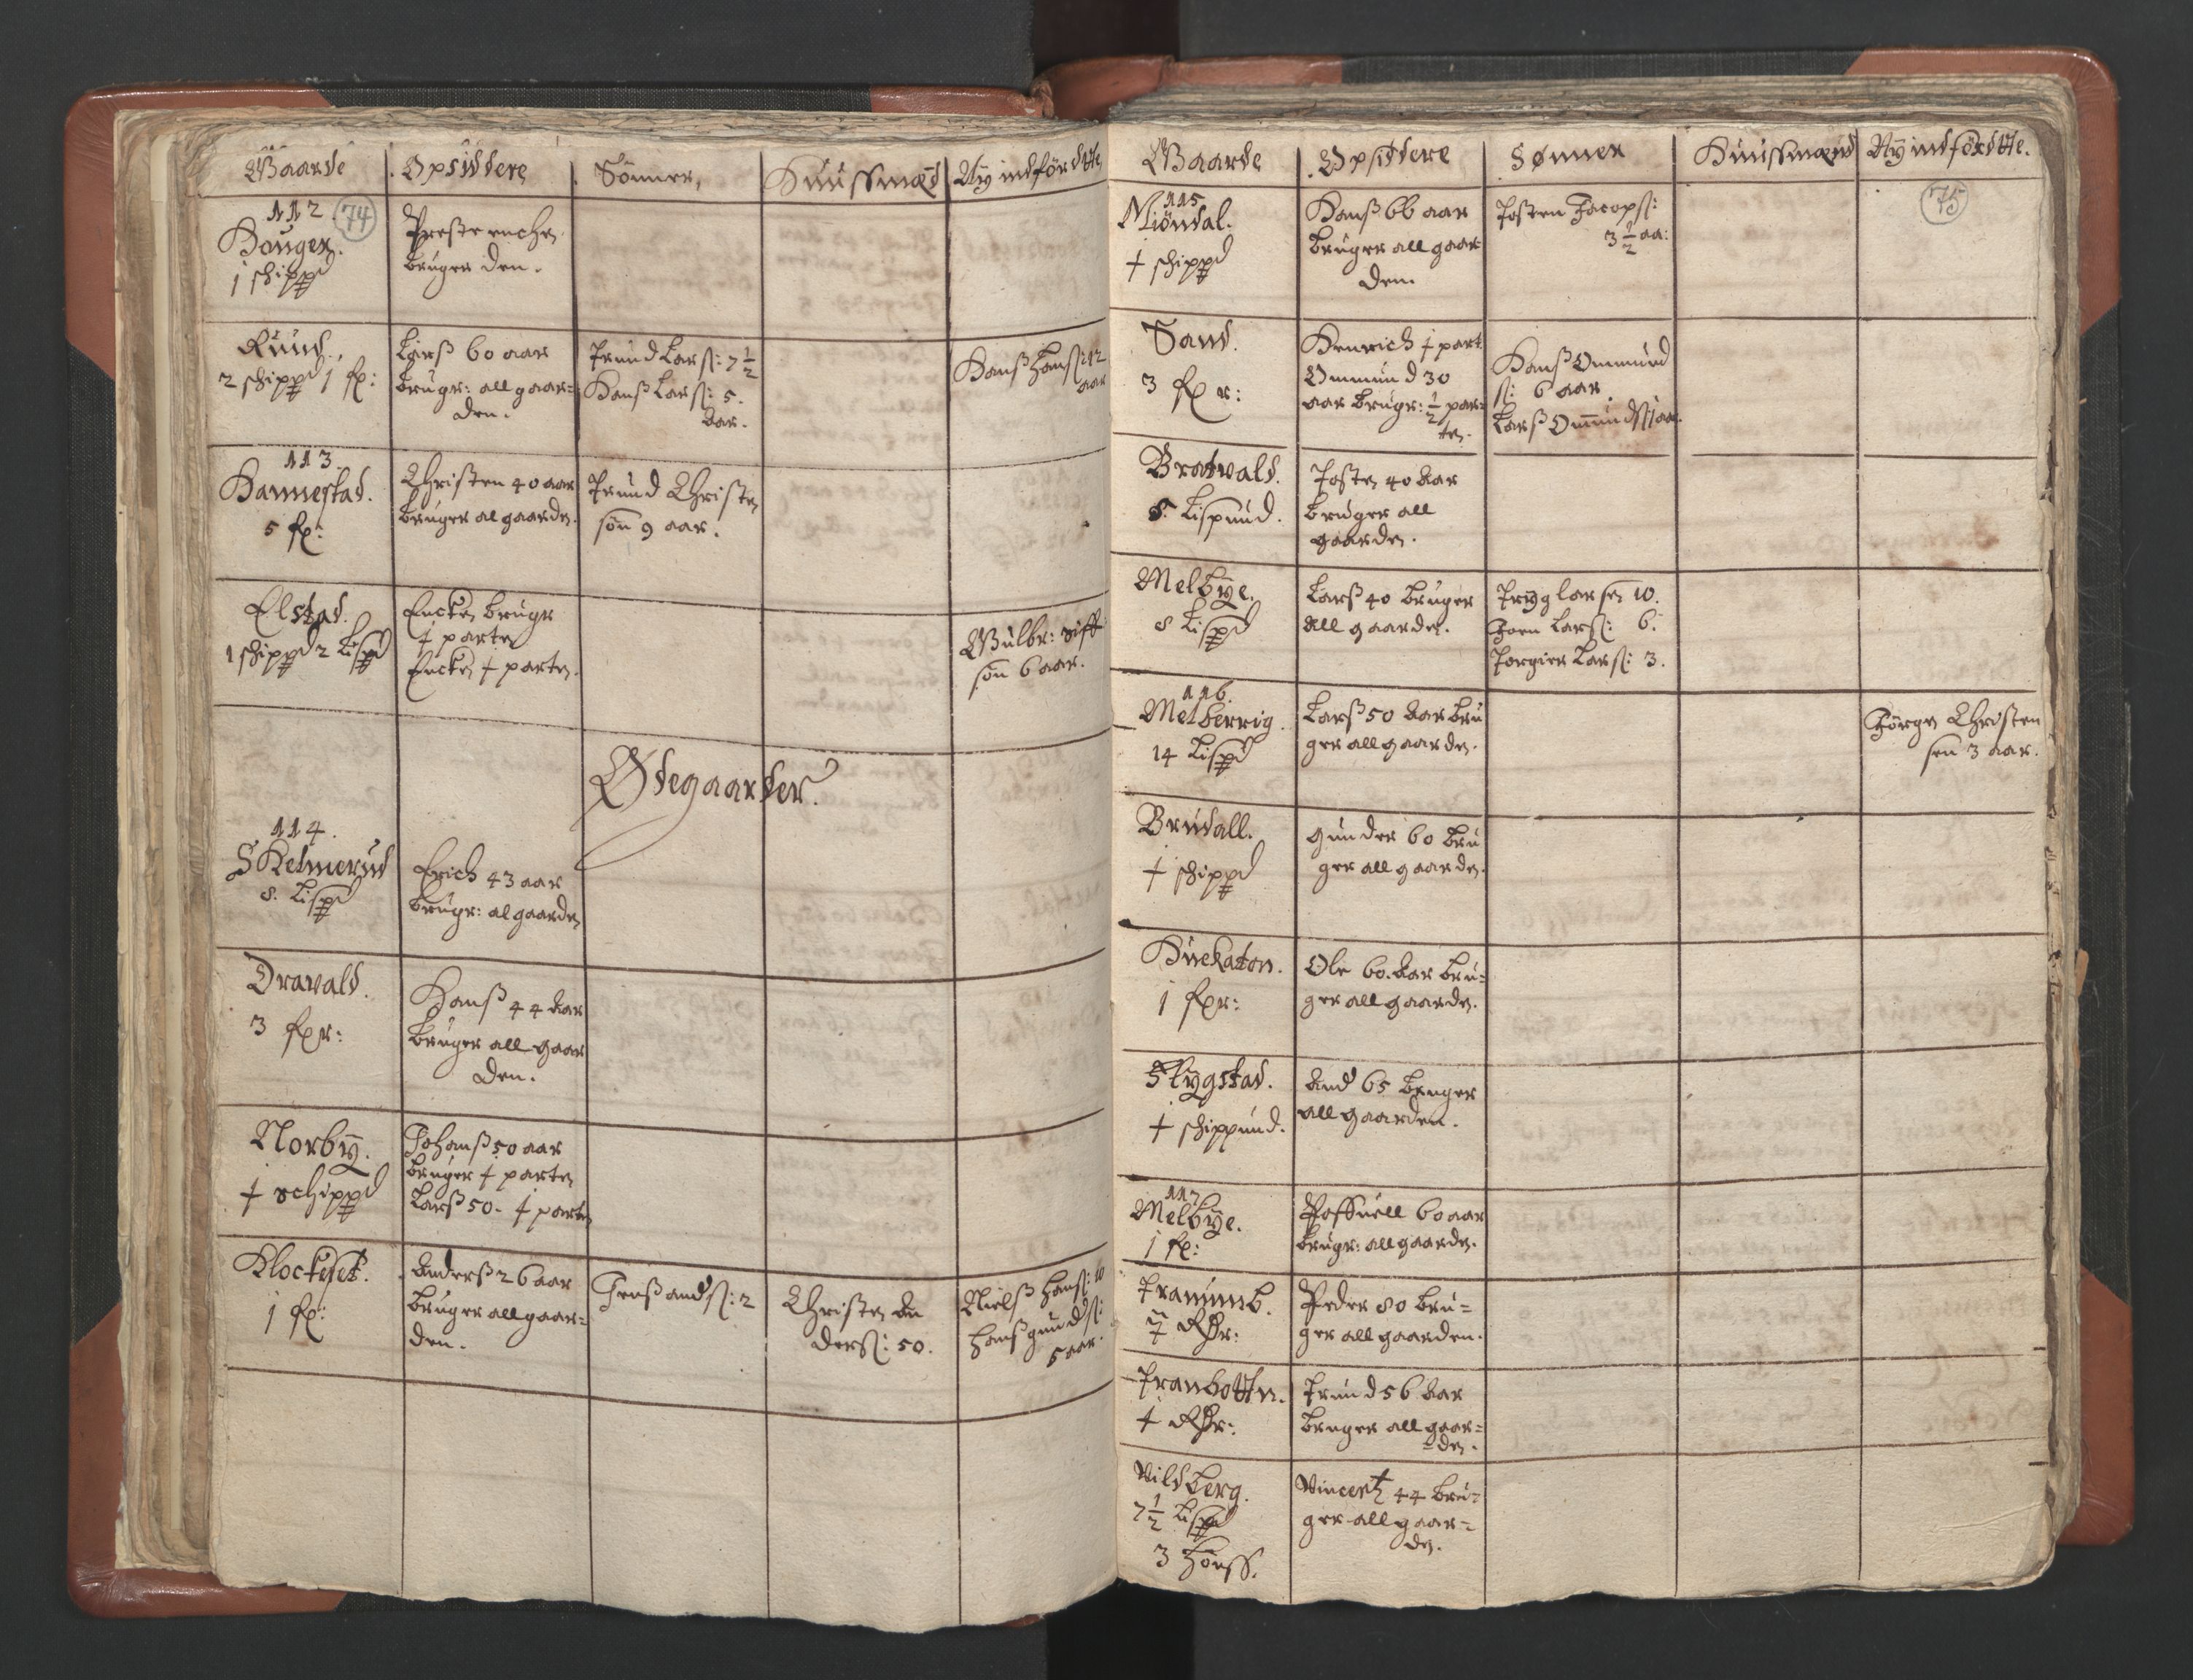 Gaarde Opsiddere Sönner, Huussmæd Ny indfördtte
112 74
Houger.
1 shippd
Presteencken
bruger den.
Ruud.
2 shippd 1 fr:
Larss 60 aar
brugr: all gaar=
den.
Trund Larss: 7 1/2
Hanss Larss: 5.
aar.
Hanss Hanss: 12
aar
113
Hannestad.
5 fr:
Christen 40 aar
bruger al gaarden.
Trund Christen
sön 9 aar.
Elstad.
1 shippd 2 Lispd
Encken brugr
½ parten
Encken ½ parten.
Gulbr: siff
sön 6 aar.
Ødegaarder.
114.
SKelmerud
8. Lispd
Erich 43 aar
brugr: al gaarden
Dravald.
3 fr:
Hanss 44 aar
bruger all gaar
den.
Norby.
½ schippd
Johanss 50 aar
bruger ½ parten
Larss 50. ½ parten
Klockeset.
1 fr:
Anderss 26 aar
bruger all gaar=
den.
Jenss andss: 2
Christen An
derss: 50.
Nielss Hanss: 10
Hanss gundss:
5 aar.
Gaarde Opsiddere Sønner Huussmænd Ny indfördtte.
75
115
Miöndal.
½ shippd
Hanss 66 aar
bruger all gaar
den.
Josten Jacopss:
3 1/2 aa:
Sand.
3 fr:
Henrich ½ part.
Ommund 30
aar brugr: 1/2 par=
ten.
Hanss Ommund
ss: 6 aar.
Larss Ommundss 1 aar.
Bratvald.
8. Lispund.
Josten 40 aar
bruger all
gaarden.
Melbye.
8 Lispd
Larss 40 bruger
all gaarden.
Tryg larsen 10.
Joen Larss: 6.
Torgier Larss: 3.
116.
Melberrig.
14 Lispd
Larss 50 aar bru
ger all gaarden.
Jörgen Christen
sen 3 aar.
Brudall.
½ shippd
Gunder 60 bru
ger all gaarden.
Huekaton.
1 fr:
Ole 60. aar bru=
ger all gaarden.
Flygstad.
½ shippund.
And 65 bruger
all gaarden.
117
Melbye.
1 fr:
Poffuell 60 aar
brugr: all gaarden.
Tranumb.
Peder 80 bru=
ger all gaarden.
Tranbotten.
Trund 56 aar
bruger all gaar=
=den.
Vildberg.
7 1/2 Lispd
3 Hönss.
Vincentz 44 bru=
ger all gaar=
den.